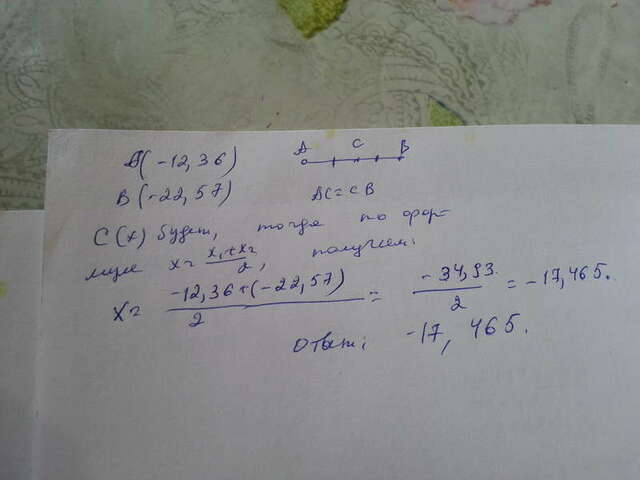 A(-12,36) A C B
B(-22,57) AC=CB
C(x) будет, тогда по фор-
муле x= x₁+x₂/2, получаем:
x= -12,36+(-22,57)/2 = -34,93/2 = -17,465.
Ответ: -17,465.